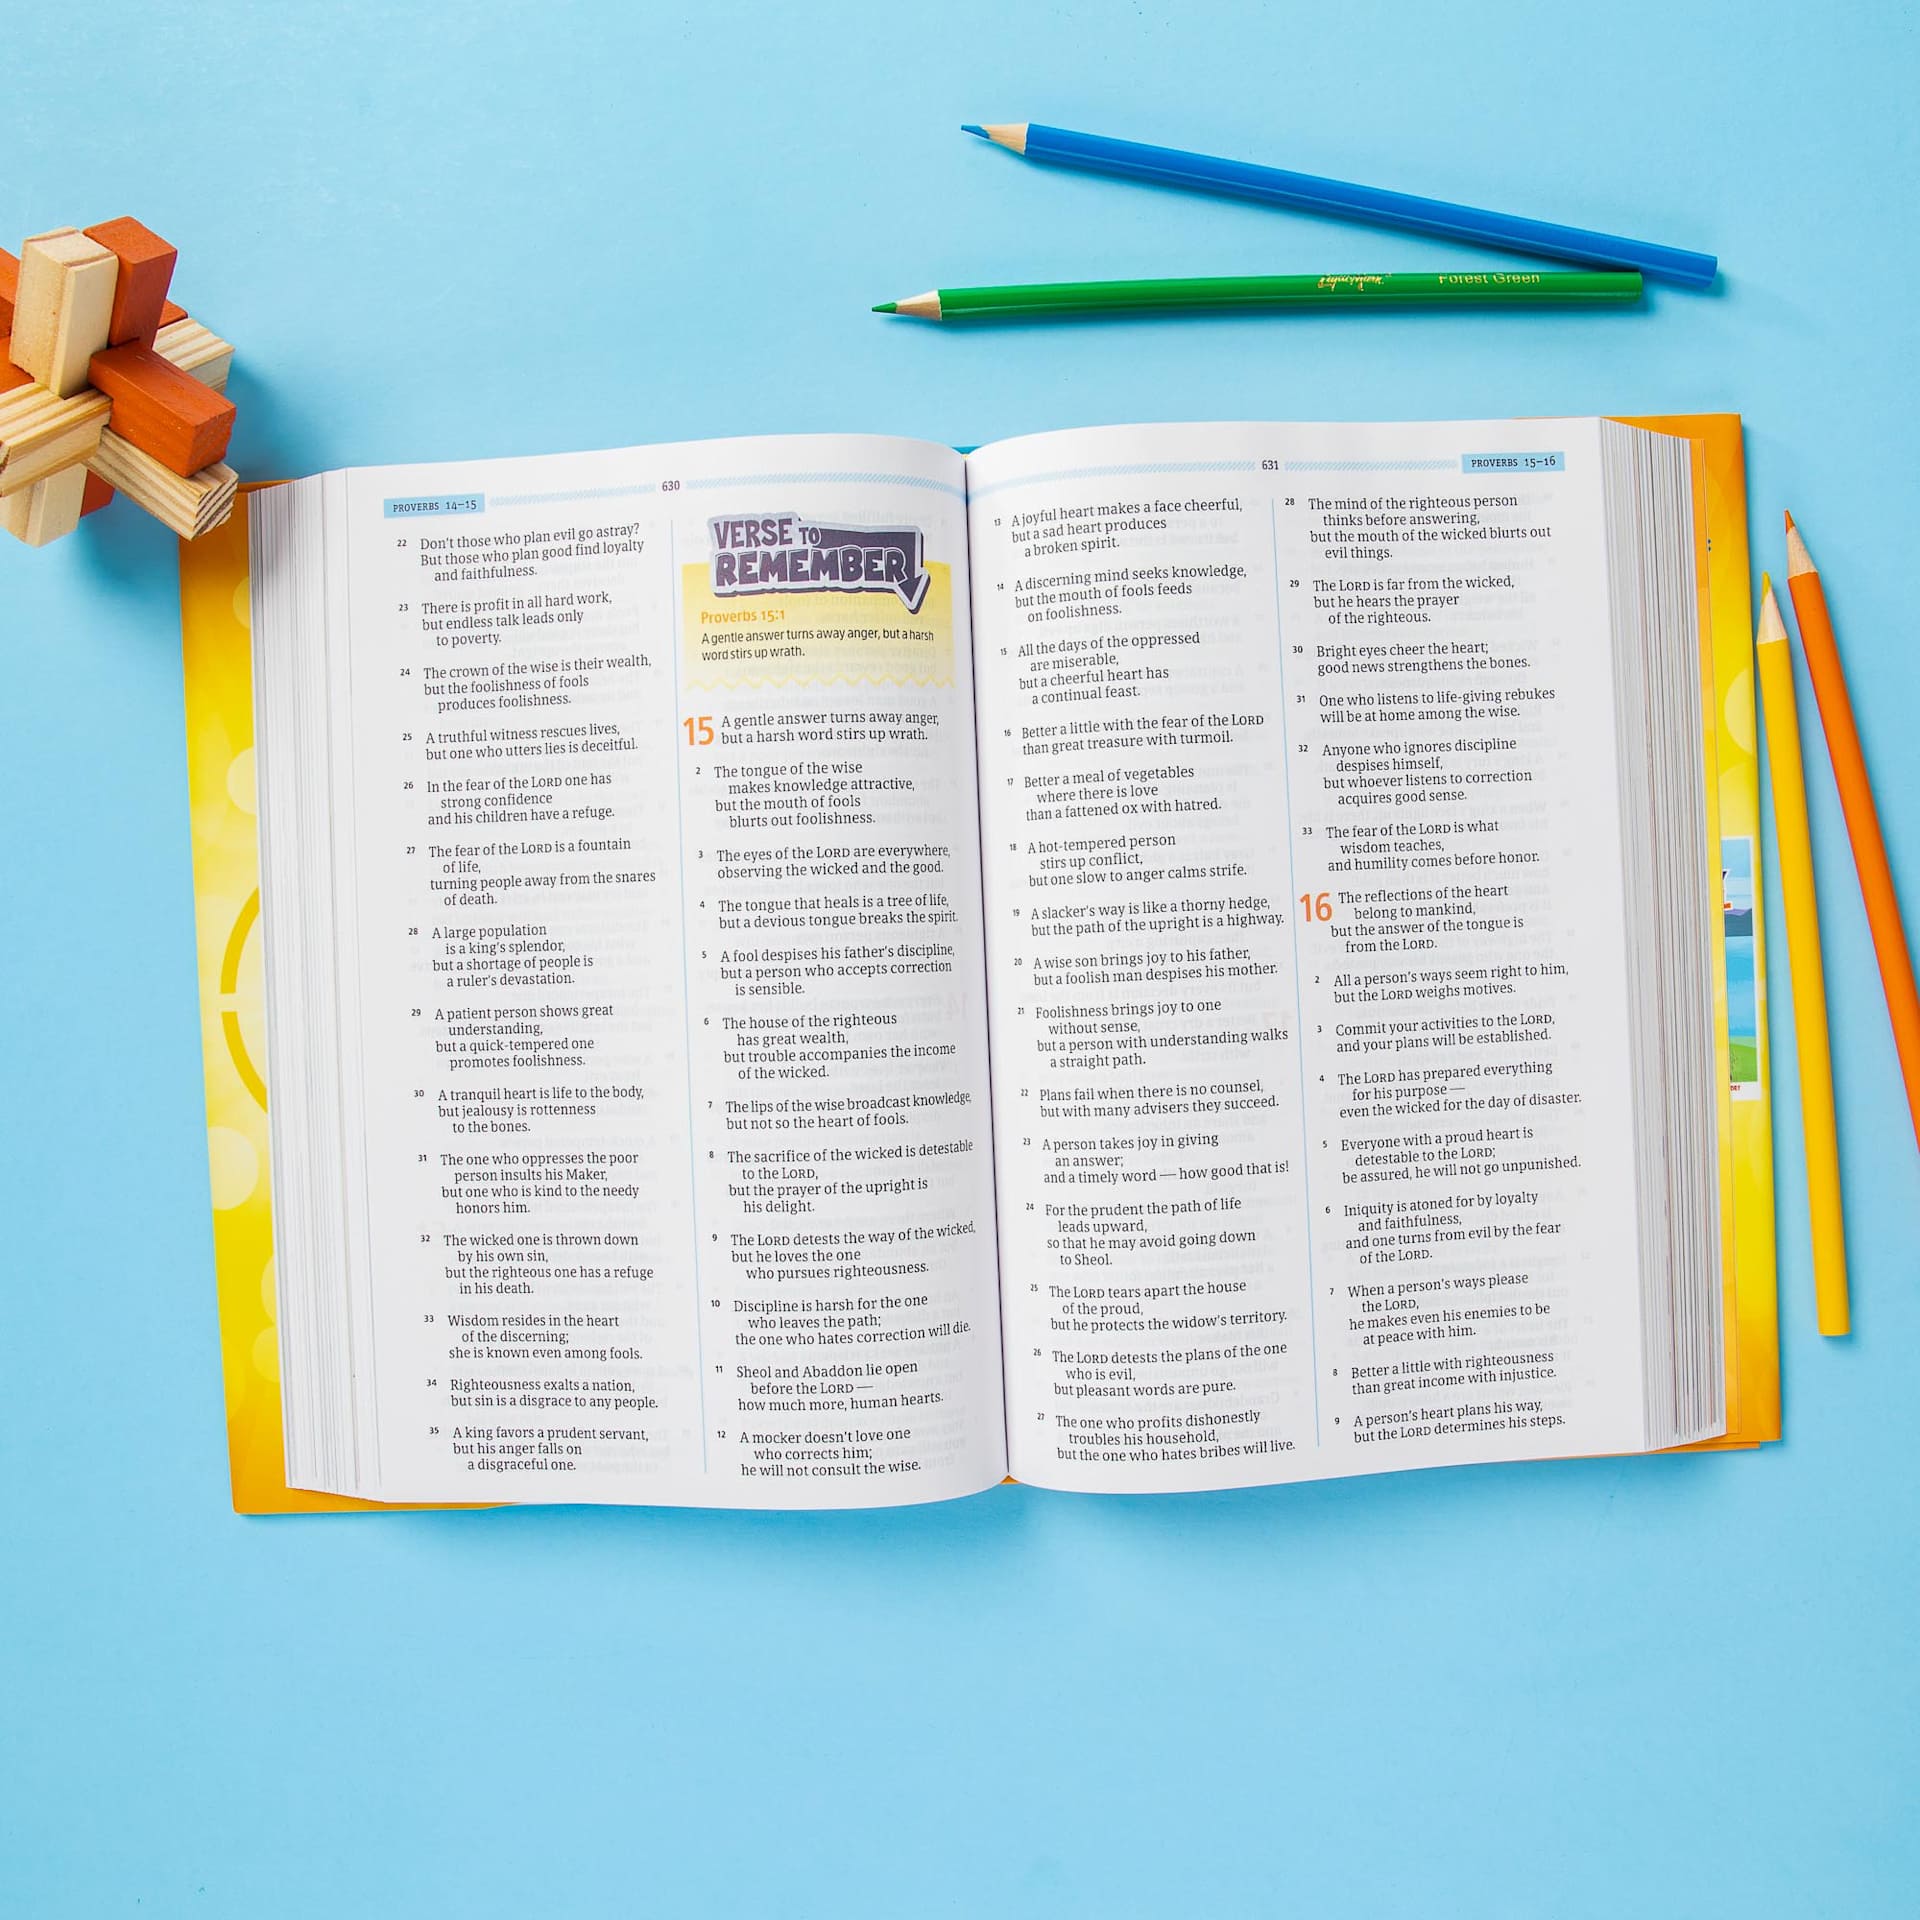 Forest Green
PROVERBS 14–15
630
22 Don't those who plan evil go astray?
But those who plan good find loyalty
and faithfulness.
23 There is profit in all hard work,
but endless talk leads only
to poverty.
24 The crown of the wise is their wealth,
but the foolishness of fools
produces foolishness.
25 A truthful witness rescues lives,
but one who utters lies is deceitful.
26 In the fear of the LORD one has
strong confidence
and his children have a refuge.
27 The fear of the LORD is a fountain
of life,
turning people away from the snares
of death.
28 A large population
is a king's splendor,
but a shortage of people is
a ruler's devastation.
29 A patient person shows great
understanding,
but a quick-tempered one
promotes foolishness.
30 A tranquil heart is life to the body,
but jealousy is rottenness
to the bones.
31 The one who oppresses the poor
person insults his Maker,
but one who is kind to the needy
honors him.
32 The wicked one is thrown down
by his own sin,
but the righteous one has a refuge
in his death.
33 Wisdom resides in the heart
of the discerning;
she is known even among fools.
34 Righteousness exalts a nation,
but sin is a disgrace to any people.
35 A king favors a prudent servant,
but his anger falls on
a disgraceful one.
VERSE TO
REMEMBER
Proverbs 15:1
A gentle answer turns away anger, but a harsh
word stirs up wrath.
15 A gentle answer turns away anger,
but a harsh word stirs up wrath.
2 The tongue of the wise
makes knowledge attractive,
but the mouth of fools
blurts out foolishness.
3 The eyes of the LORD are everywhere,
observing the wicked and the good.
4 The tongue that heals is a tree of life,
but a devious tongue breaks the spirit.
5 A fool despises his father's discipline,
but a person who accepts correction
is sensible.
6 The house of the righteous
has great wealth,
but trouble accompanies the income
of the wicked.
7 The lips of the wise broadcast knowledge,
but not so the heart of fools.
8 The sacrifice of the wicked is detestable
to the LORD,
but the prayer of the upright is
his delight.
9 The LORD detests the way of the wicked,
but he loves the one
who pursues righteousness.
10 Discipline is harsh for the one
who leaves the path;
the one who hates correction will die.
11 Sheol and Abaddon lie open
before the LORD —
how much more, human hearts.
12 A mocker doesn't love one
who corrects him;
he will not consult the wise.
631
PROVERBS 15–16
13 A joyful heart makes a face cheerful,
but a sad heart produces
a broken spirit.
14 A discerning mind seeks knowledge,
but the mouth of fools feeds
on foolishness.
15 All the days of the oppressed
are miserable,
but a cheerful heart has
a continual feast.
16 Better a little with the fear of the LORD
than great treasure with turmoil.
17 Better a meal of vegetables
where there is love
than a fattened ox with hatred.
18 A hot-tempered person
stirs up conflict,
but one slow to anger calms strife.
19 A slacker's way is like a thorny hedge,
but the path of the upright is a highway.
20 A wise son brings joy to his father,
but a foolish man despises his mother.
21 Foolishness brings joy to one
without sense,
but a person with understanding walks
a straight path.
22 Plans fail when there is no counsel,
but with many advisers they succeed.
23 A person takes joy in giving
an answer;
and a timely word — how good that is!
24 For the prudent the path of life
leads upward,
so that he may avoid going down
to Sheol.
25 The LORD tears apart the house
of the proud,
but he protects the widow's territory.
26 The LORD detests the plans of the one
who is evil,
but pleasant words are pure.
27 The one who profits dishonestly
troubles his household,
but the one who hates bribes will live.
28 The mind of the righteous person
thinks before answering,
but the mouth of the wicked blurts out
evil things.
29 The LORD is far from the wicked,
but he hears the prayer
of the righteous.
30 Bright eyes cheer the heart;
good news strengthens the bones.
31 One who listens to life-giving rebukes
will be at home among the wise.
32 Anyone who ignores discipline
despises himself,
but whoever listens to correction
acquires good sense.
33 The fear of the LORD is what
wisdom teaches,
and humility comes before honor.
16 The reflections of the heart
belong to mankind,
but the answer of the tongue is
from the LORD.
2 All a person's ways seem right to him,
but the LORD weighs motives.
3 Commit your activities to the LORD,
and your plans will be established.
4 The LORD has prepared everything
for his purpose —
even the wicked for the day of disaster.
5 Everyone with a proud heart is
detestable to the LORD;
be assured, he will not go unpunished.
6 Iniquity is atoned for by loyalty
and faithfulness,
and one turns from evil by the fear
of the LORD.
7 When a person's ways please
the LORD,
he makes even his enemies to be
at peace with him.
8 Better a little with righteousness
than great income with injustice.
9 A person's heart plans his way,
but the LORD determines his steps.